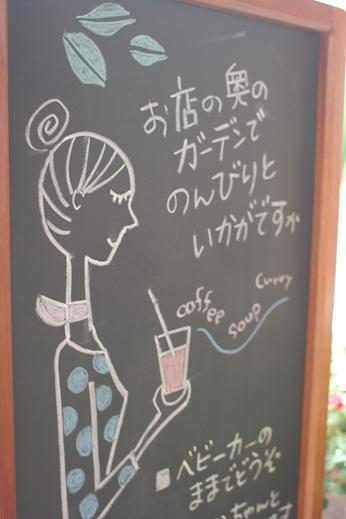 お店の奥の
ガーデンで
のんびりと
いかがですか
coffee
soup
curry
ベビーカーの
ままでどうぞ
ちゃんと